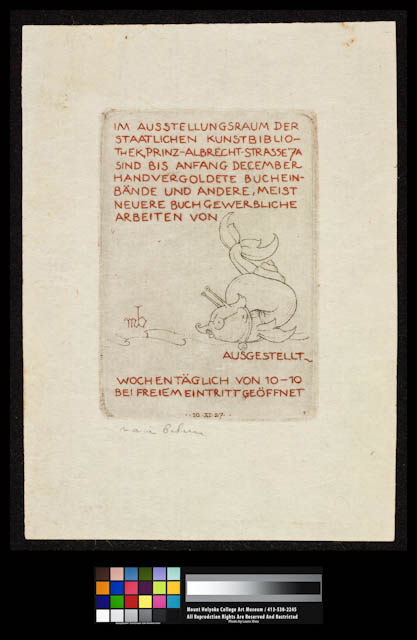 IM AUSSTELLUNGSRAUM DER
STAATLICHEN KUNSTBIBLIO-
THEK, PRINZ-ALBRECHT-STRASSE 7A
SIND BIS ANFANG DECEMBER
HANDVERGOLDETE BUCHEIN-
BÄNDE UND ANDERE, MEIST
NEUERE BUCHGEWERBLICHE
ARBEITEN VON
mb
AUSGESTELLT~
WOCHENTÄGLICH VON 10-10
BEI FREIEM EINTRITT GEÖFFNET
Mount Holyoke College Art Museum / 413-538-2245
All Reproduction Rights Are Reserved And Restricted